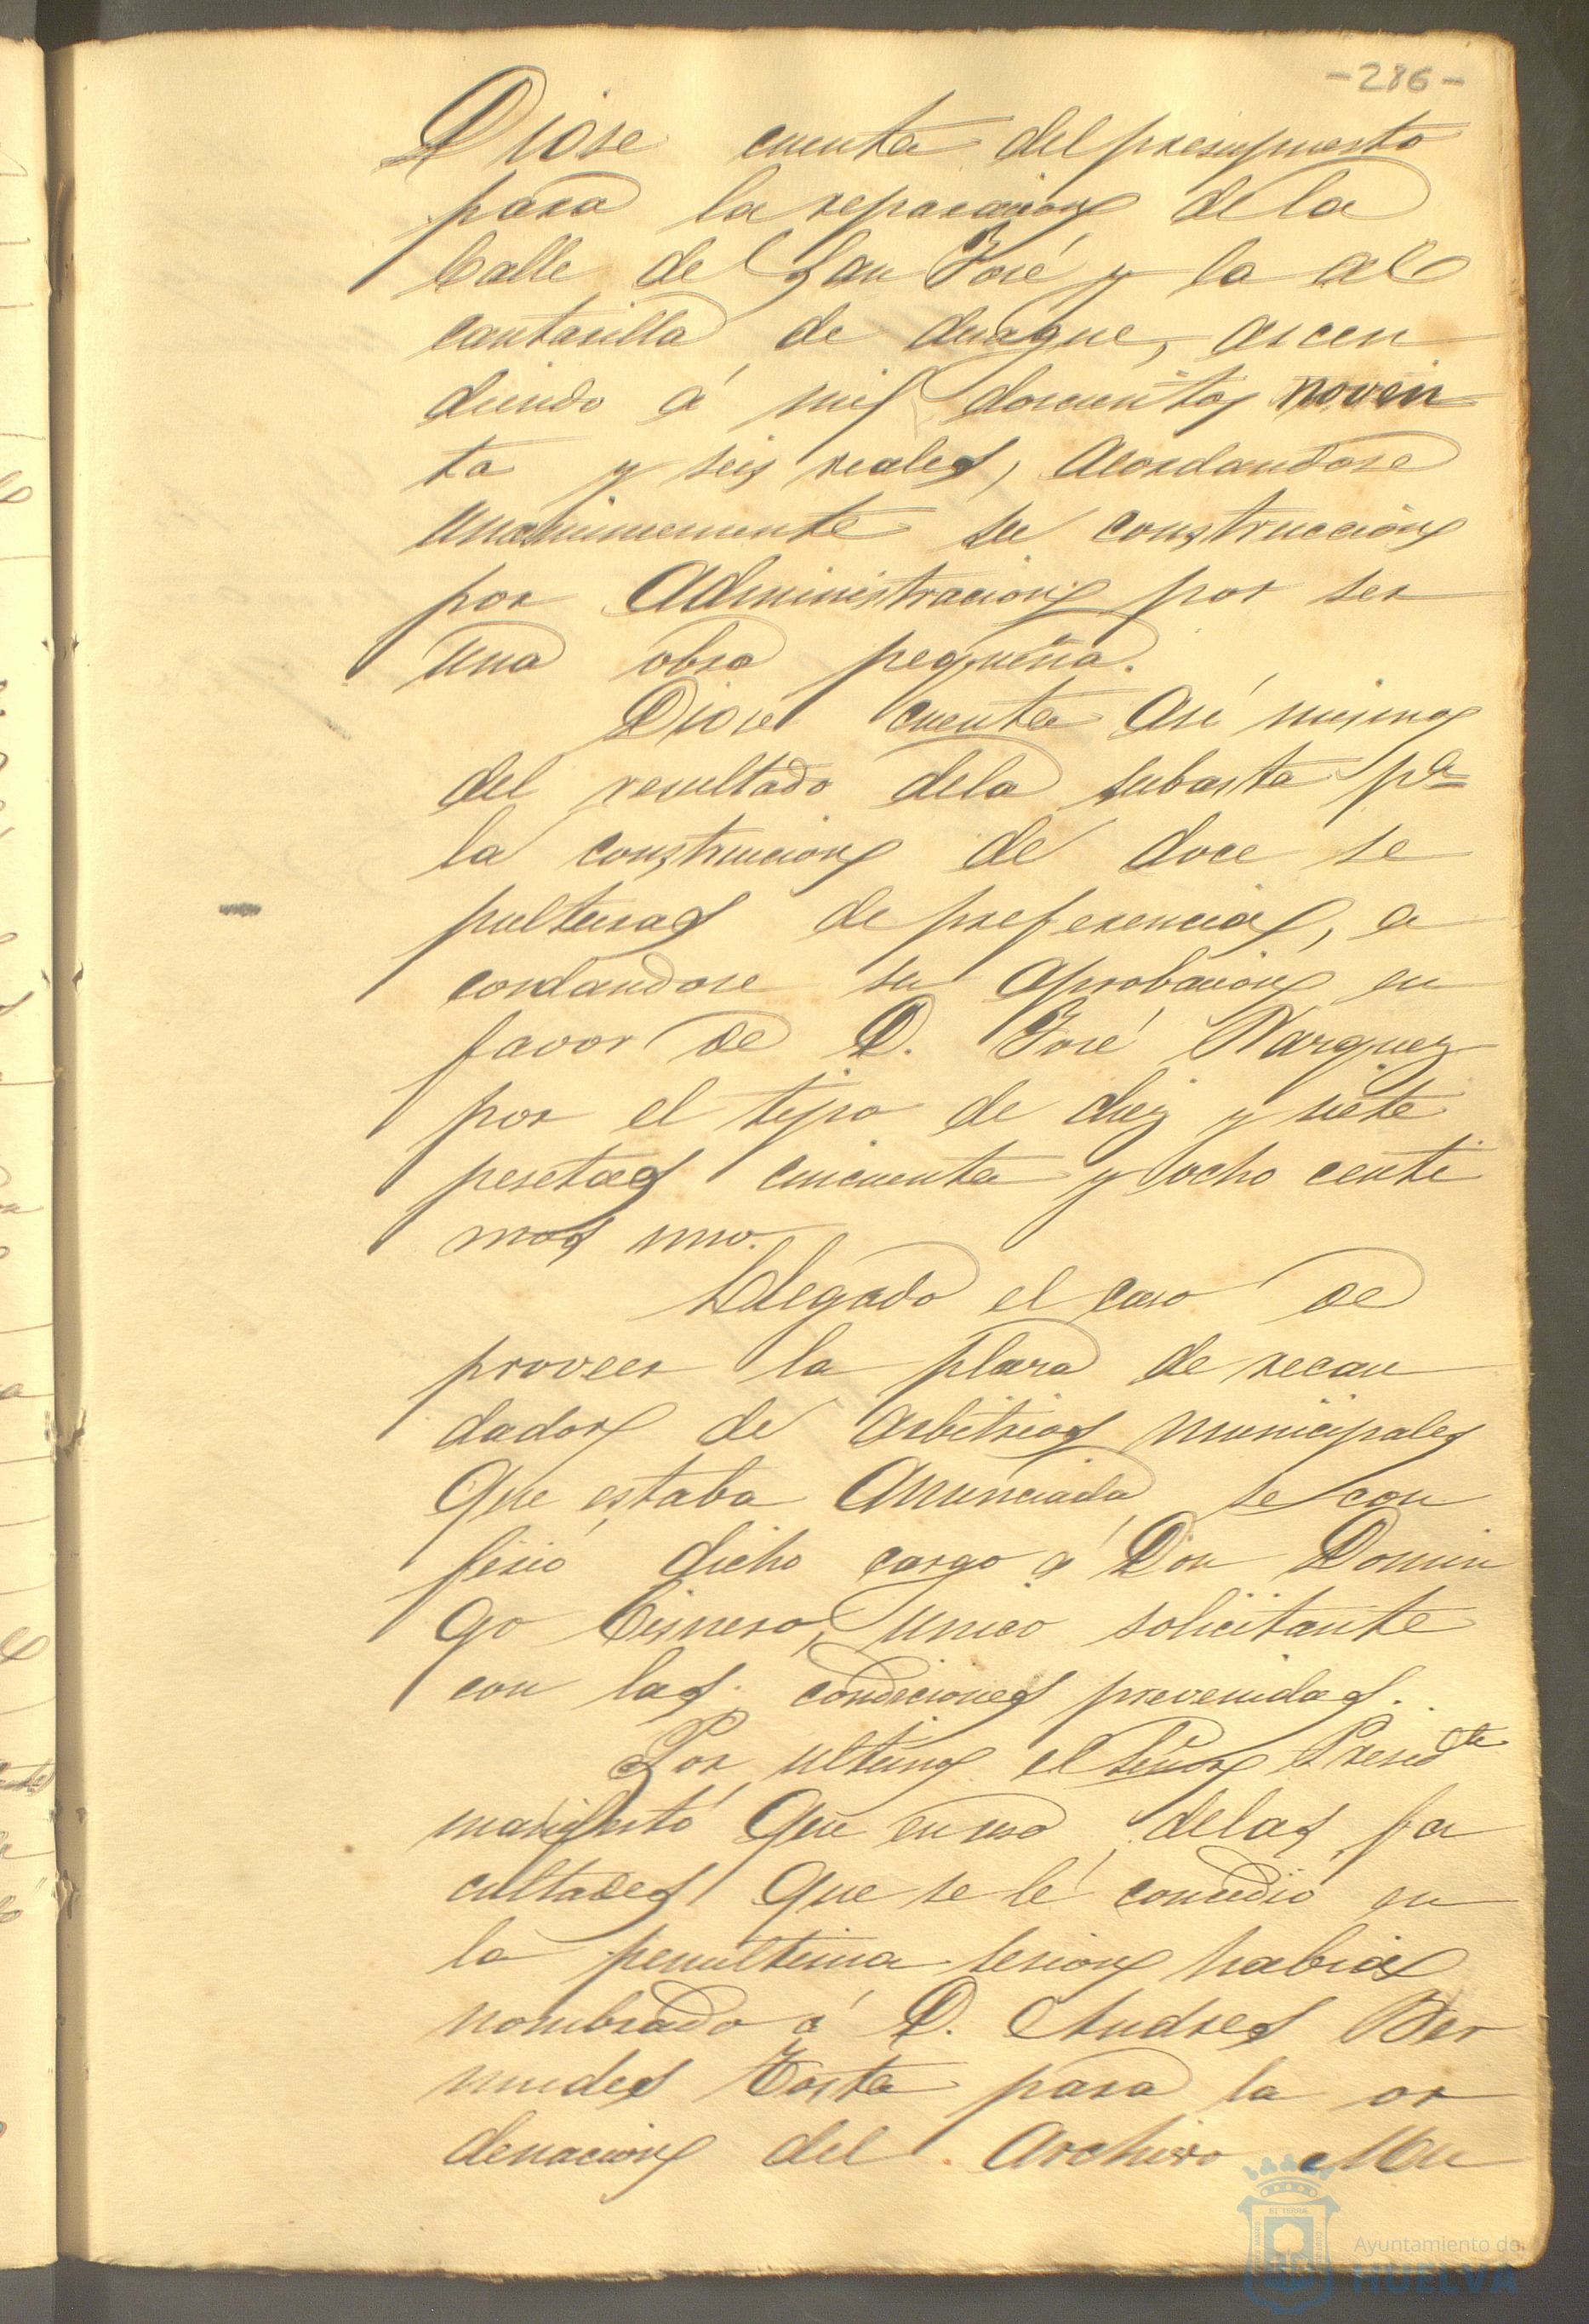 -286-
Diose cuenta del presupuesto
para la reparacion de la
Calle de San José y la al
cantarilla de desague, ascen
diendo á mil doscientos noven
ta y seis reales, acordandose
unanimemente su construccion
por Administracion por ser
una obra pequeña.
Diose cuenta así mismo
del resultado dela subasta pª
la construccion de doce se
pulturas de preferencia, a
cordandose su aprobacion en
favor de D. José Marquez
por el tipo de diez y siete
pesetas cincuenta y ocho centi
mos uno.
Llegado el caso de
proveer la plaza de recau
dador de arbitrios municipales
que estaba anunciada, se con
firió dicho cargo á Don Domin
go Cisnero, unico solicitante
con las condiciones prevenidas.
Por ultimo el Señor Presidte
manifestó que en uso delas fa
cultades que se lé concedió en
la penultima sesion habia
nombrado á D. Andres Ber
mudes Costa para la or
denacion del Archivo Mu
Ayuntamiento de
HUELVA